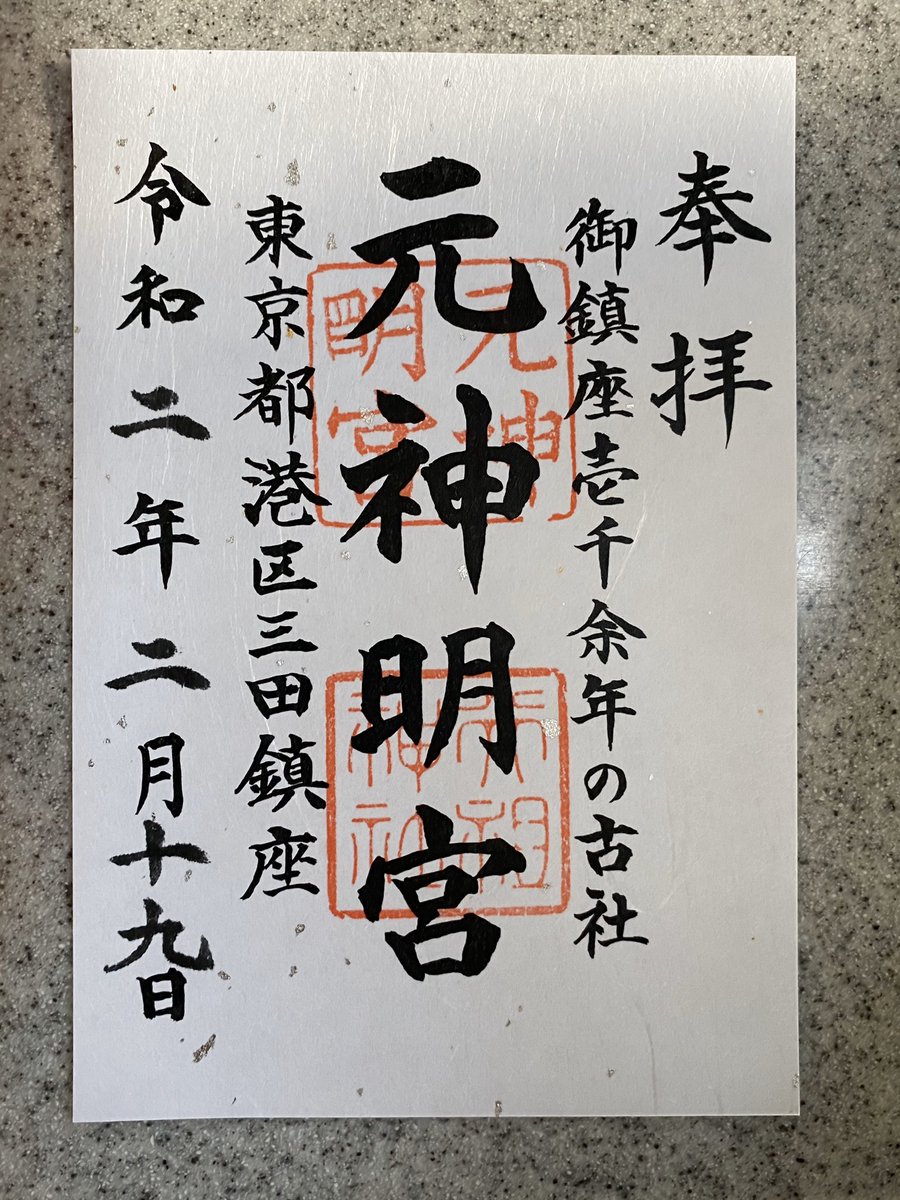 奉拝
御鎮座壱千余年の古社
元神明宮
東京都港区三田鎮座
令和二年二月十九日
元神
明宮